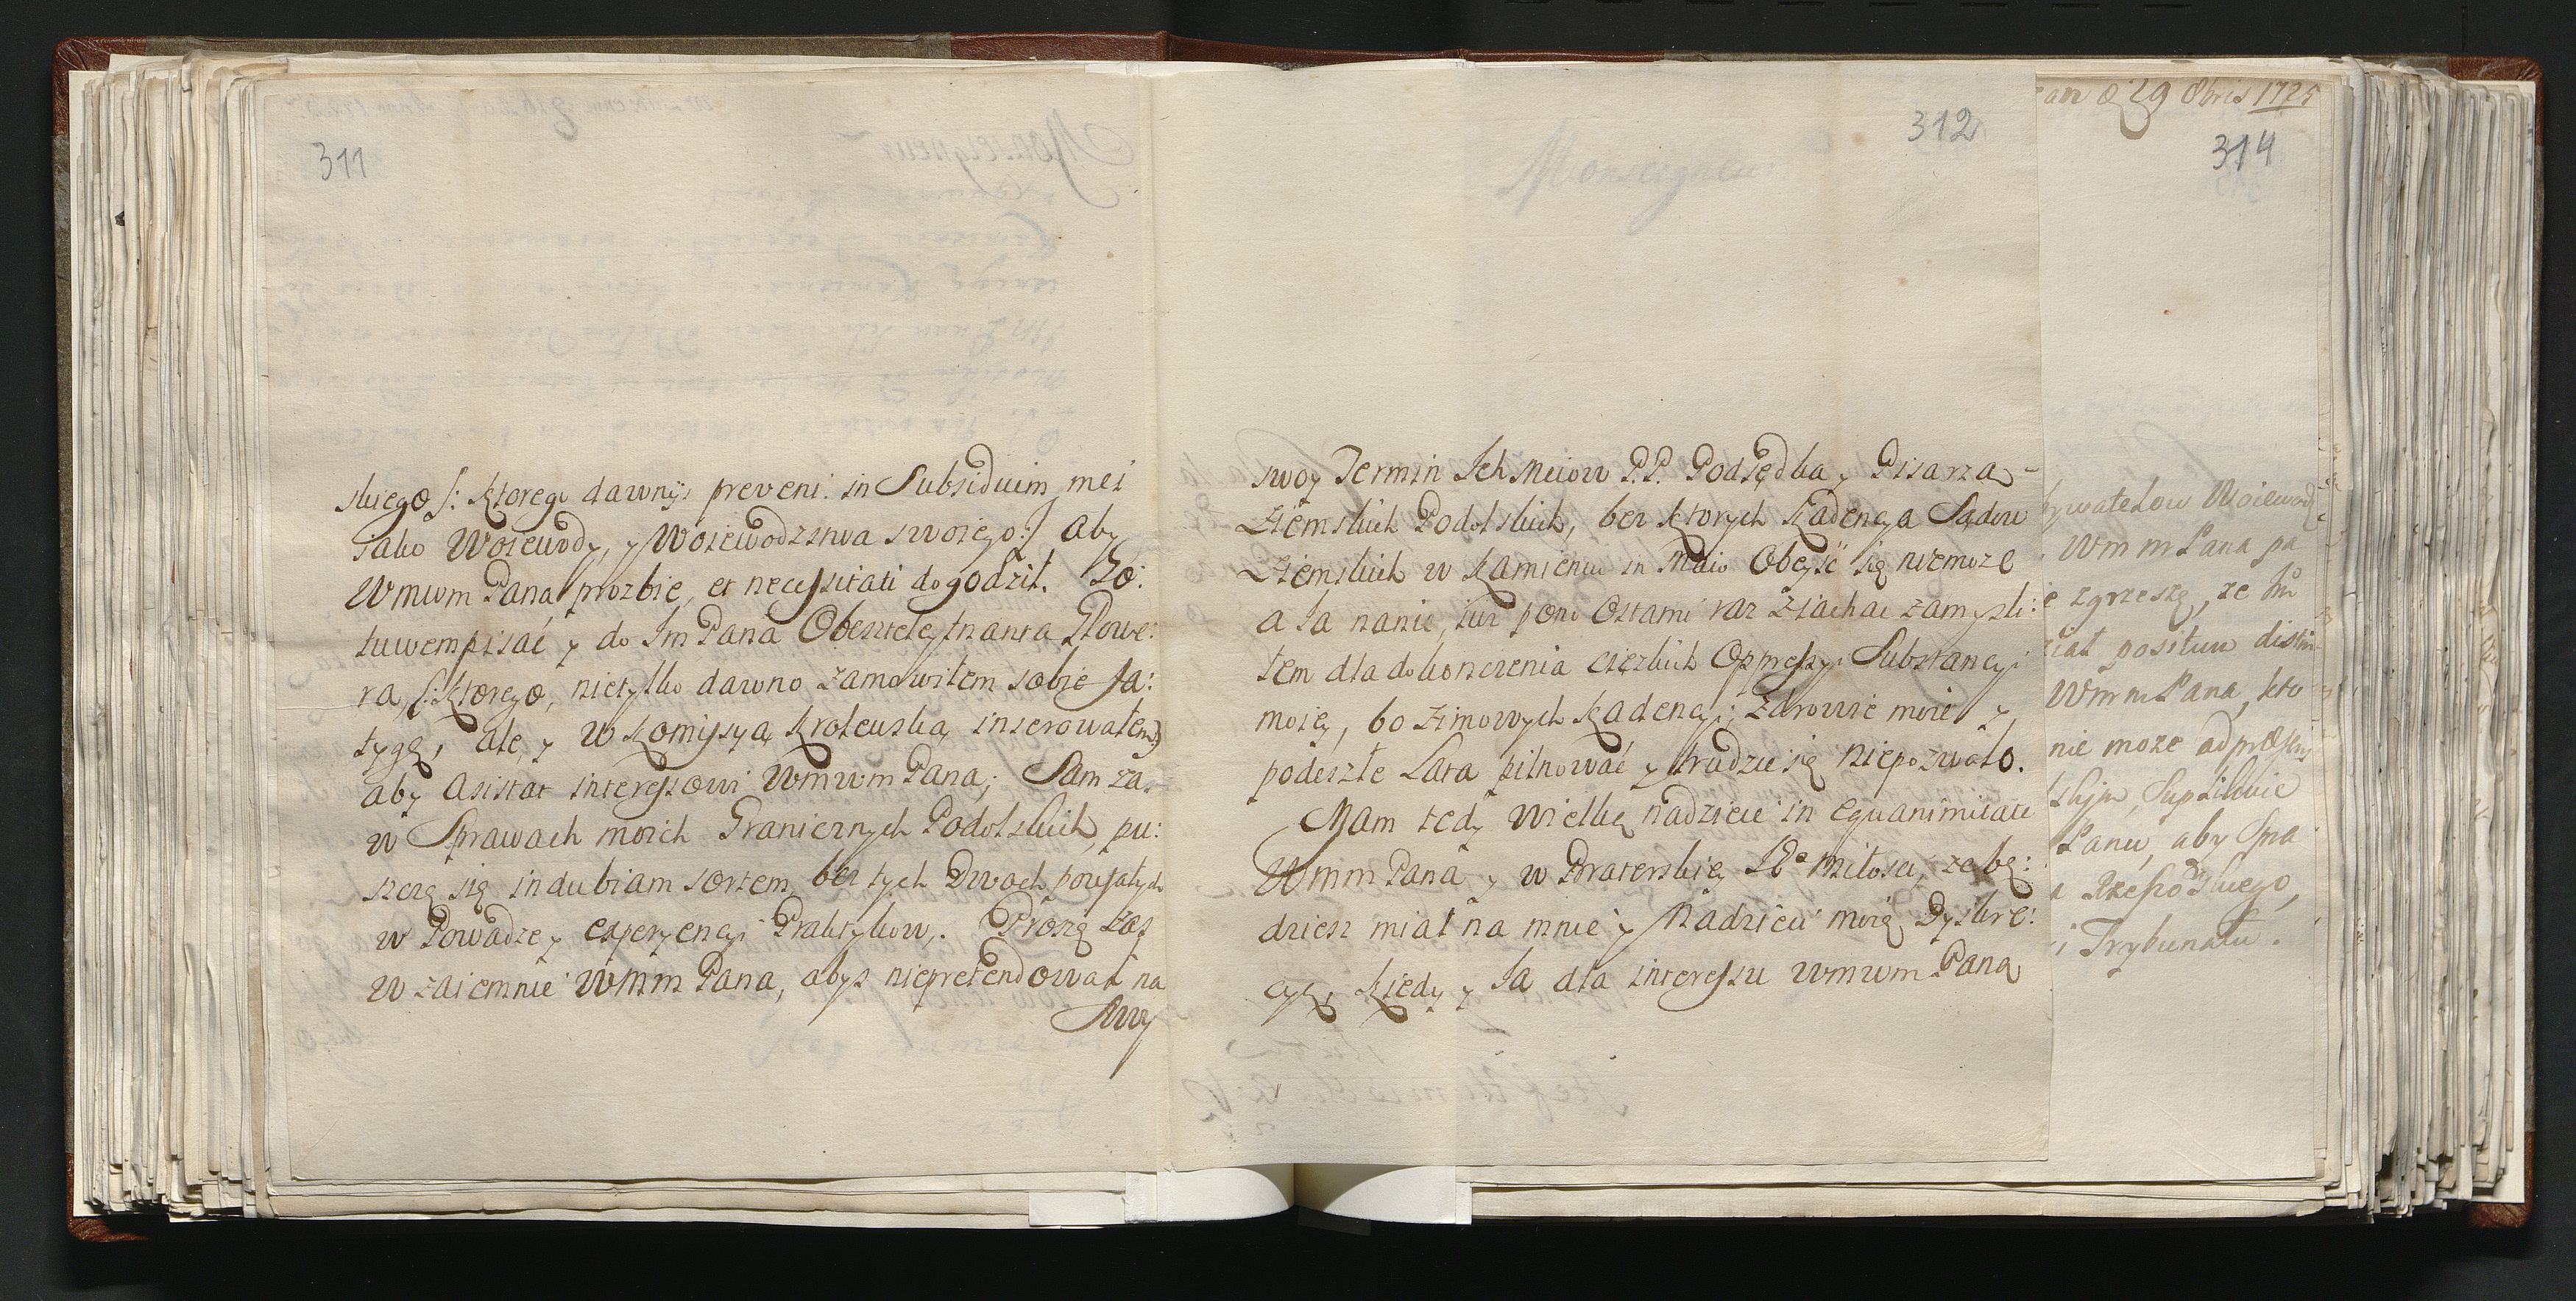 311
skiego /: ktorego dawnijs preveni in Subsidium mei
Jako Woiewody, y Woiewodzstwa swoiego :/ aby
Wmwm Pana prozbie, et necessitati dogodził. Zo:
tuwempisać y do Jm Pana Obesztleytnanta Glowe:
ra, /: ktorego, nietylko dawno zamowiłem sobie fa:
tygę, ale, y w Komissyą Krolewską inserowałem :/
aby asistat interessowi Wmwm Pana; Sam zas
w Sprawach moich Graniernych Podolskich, pu:
szczę się in dubiam sortem, bez tych Dwoch
w Powadze y experyencyi Praktykow. Proszę zas
wzaiemnie Wmm Pana, abys niepretendował na
Swoy
312
swoy Termin Ich Mciow P.P. Podsędka y Pisarza
Ziemskich Podolskich, bez ktorych Kadencya Sądow
Ziemskich w Kamiencu in Maio Obeyść się niemoze
a Ja nanię, iuz pono Ostatni raz Ziachac zamysli:
łem dla dokonczenia cięzkich Oppressyi Substancyi
moiey, bo zimowych Kadencyi, zdrowie moie y
podeszłe Lata pilnować y trudzic się niepozwolo.
Mam tedy wielką nadzieie in equanimitate
Wmm Pana y w Braterskiey Jgo miłosci, ze bę:
dziesz miał na mnie y Nadzieie moię Dyskre:
cyę, Kiedy y Ja dla interessu Wmwm Pana
29 8bris 1725
314
bywatelow Woiewod
Wmm Pana pa
zgrzeszę, ze
ział positum distin
Wmm Pana, kto
nie moze ad præsens
Suplikuie
Panu, aby Spra
i Trybunału.